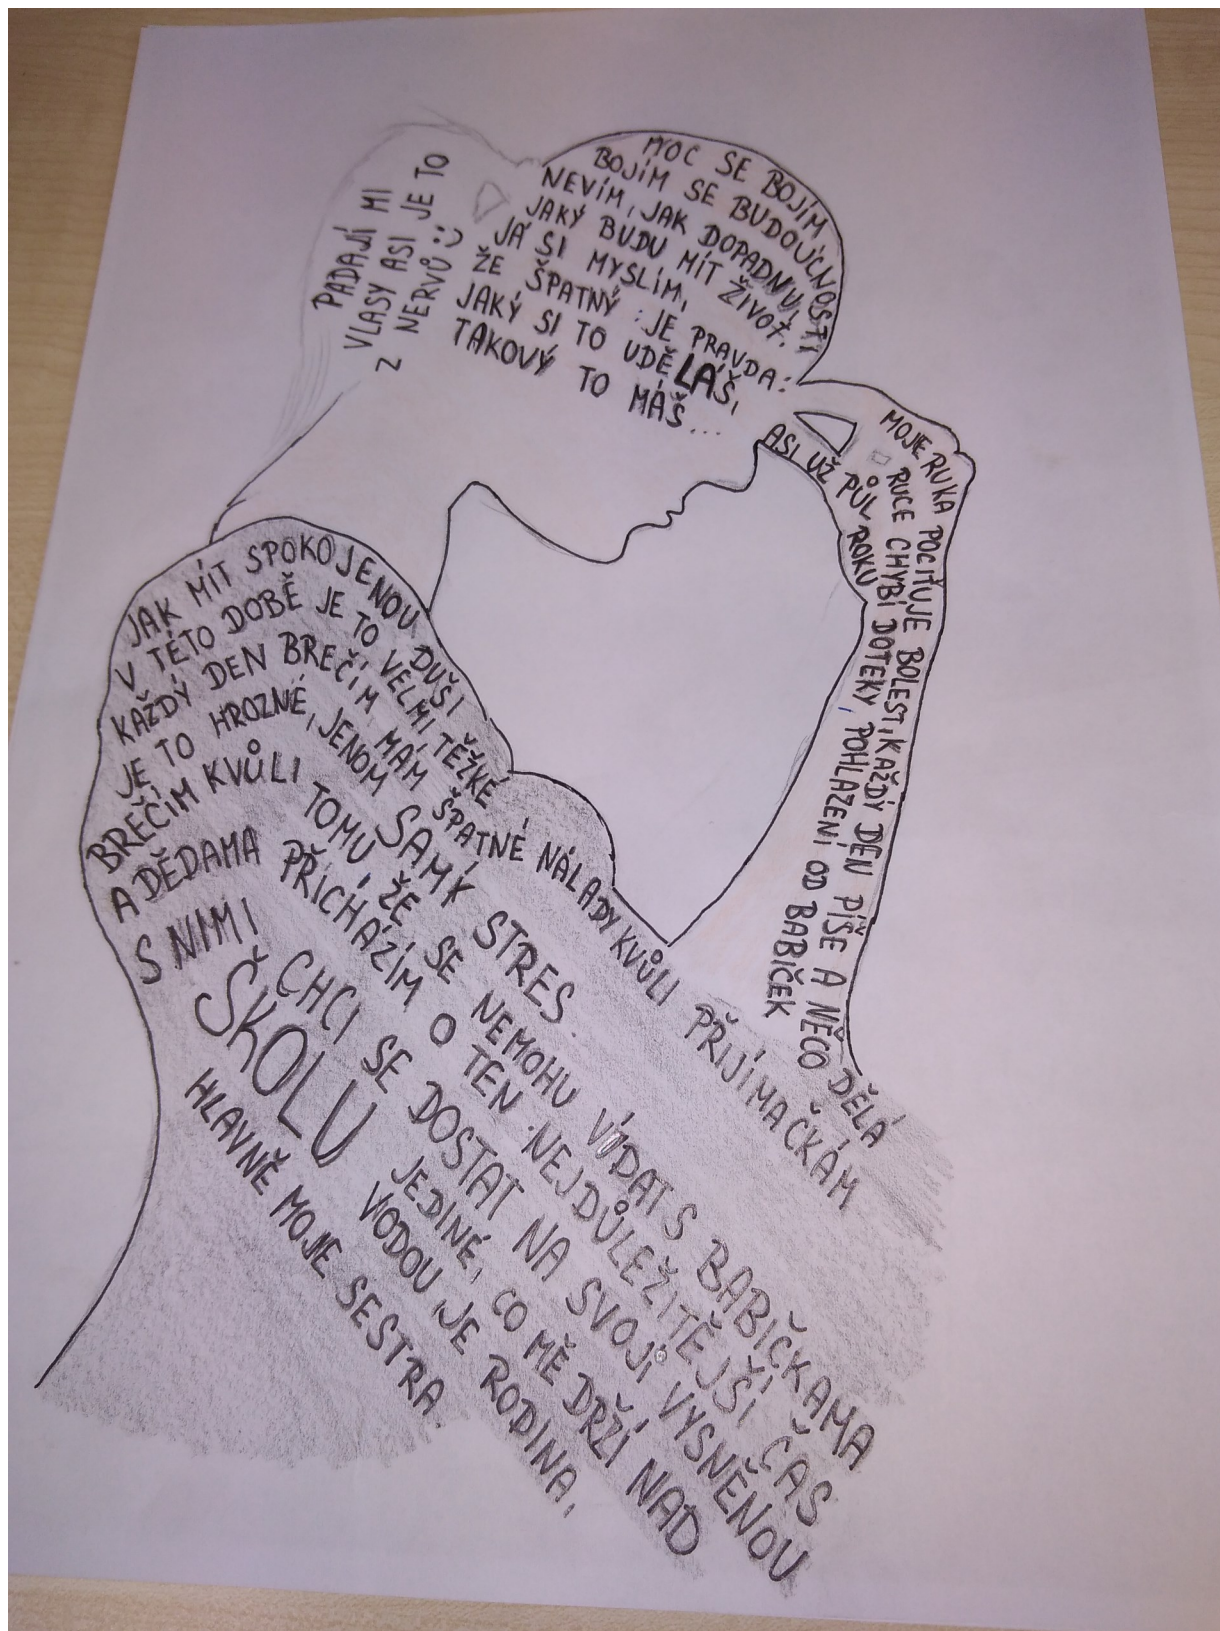 MOC SE BOJÍM
BOJÍM SE BUDOUCNOSTI
NEVÍM, JAK DOPADNU,
JAKÝ BUDU MÍT ŽIVOT.
JÁ SI MYSLÍM,
ŽE ŠPATNÝ: JE PRAVDA:
JAKÝ SI TO UDĚLÁŠ,
TAKOVÝ TO MÁŠ...
PADAJÍ MI
VLASY ASI JE TO
Z NERVŮ :)
MOJE RUKA POCIŤUJE BOLEST, KAŽDÝ DEN PÍŠE A NĚCO DĚLÁ
ASI UŽ PŮL ROKU
RUCE CHYBÍ DOTEKY, POHLAZENÍ OD BABIČEK
JAK MÍT SPOKOJENOU DUŠI
V TÉTO DOBĚ JE TO VELMI TĚŽKÉ
KAŽDÝ DEN BREČÍM, MÁM ŠPATNÉ NÁLADY KVŮLI PŘIJÍMAČKÁM
JE TO HROZNÉ, JENOM SAMÝ STRES.
BREČÍM KVŮLI TOMU, ŽE SE NEMOHU VÍDAT S BABIČKAMA
A DĚDAMA PŘICHÁZÍM O TEN NEJDŮLEŽITĚJŠÍ ČAS
S NIMI CHCI SE DOSTAT NA SVOJÍ VYSNĚNOU
ŠKOLU JEDINÉ, CO MĚ DRŽÍ NAD
VODOU JE RODINA,
HLAVNĚ MOJE SESTRA.